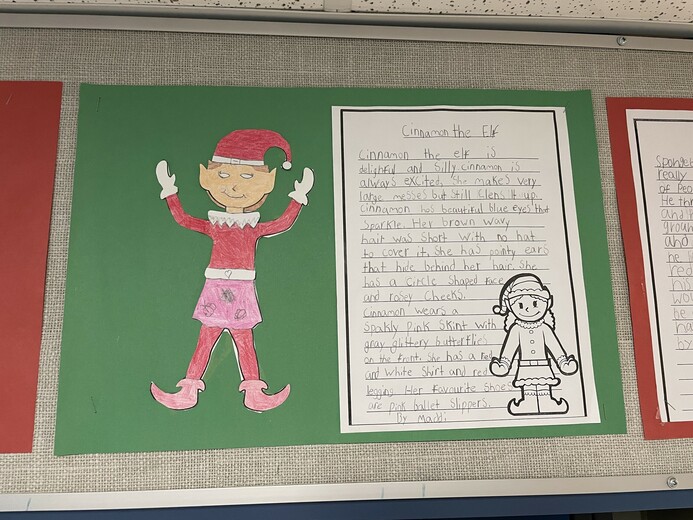 Cinnamon the Elf
Cinnamon the elf is
delighful and silly. Cinnamon is
always excited. She makes very
large messes but still clens it up.
Cinnamon has beautiful blue eyes that
sparkle. Her brown wavy
hair was short with no hat
to cover it. She has pointy ears
that hide behind her hair. She
has a circle shaped face
and rosey cheeks.
Cinnamon wears a
spakly pink skint with
gray glittery butterflies
on the front. She has a red
and white shirt and red
legging. Her favourite shoes
are pink ballet slippers.
By Maddi
really
of Peo
He thr
and
and
he s
red
his
wor
he
ha
by